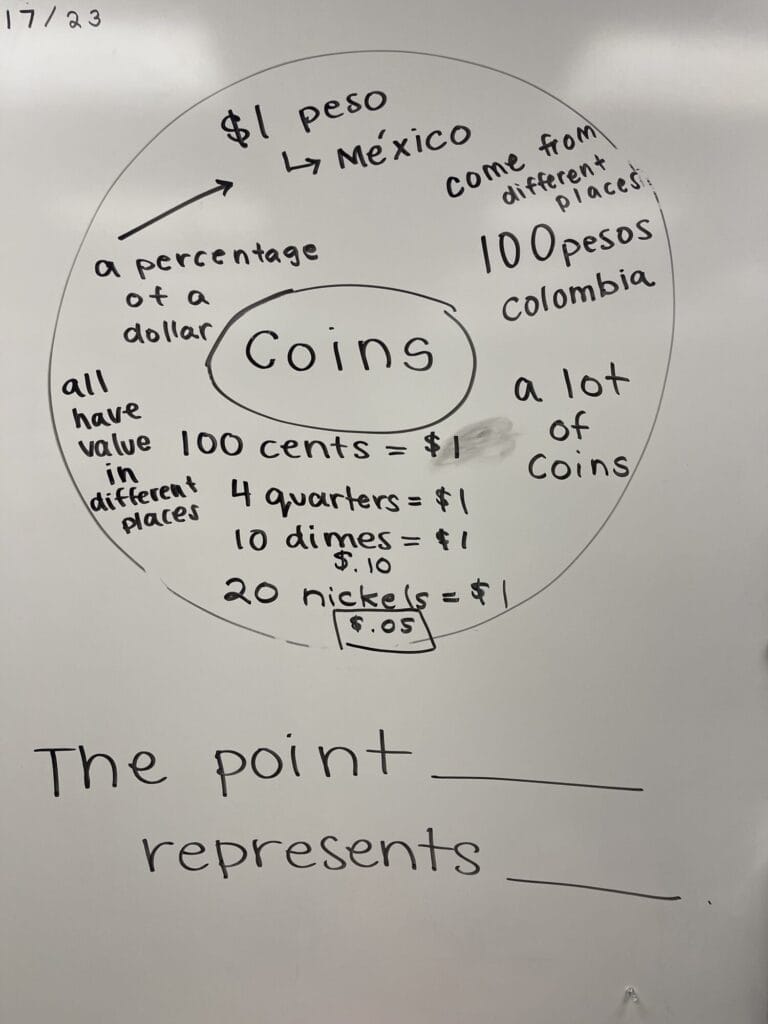 17/23
$1 peso
↳ México
come from
different
places
100 pesos
colombia
a percentage
of a
dollar
Coins
all
have
value
in
different
places
a lot
of
coins
100 cents = $1
4 quarters = $1
10 dimes = $1
$.10
20 nickels = $1
$.05
The point ______
represents ______.